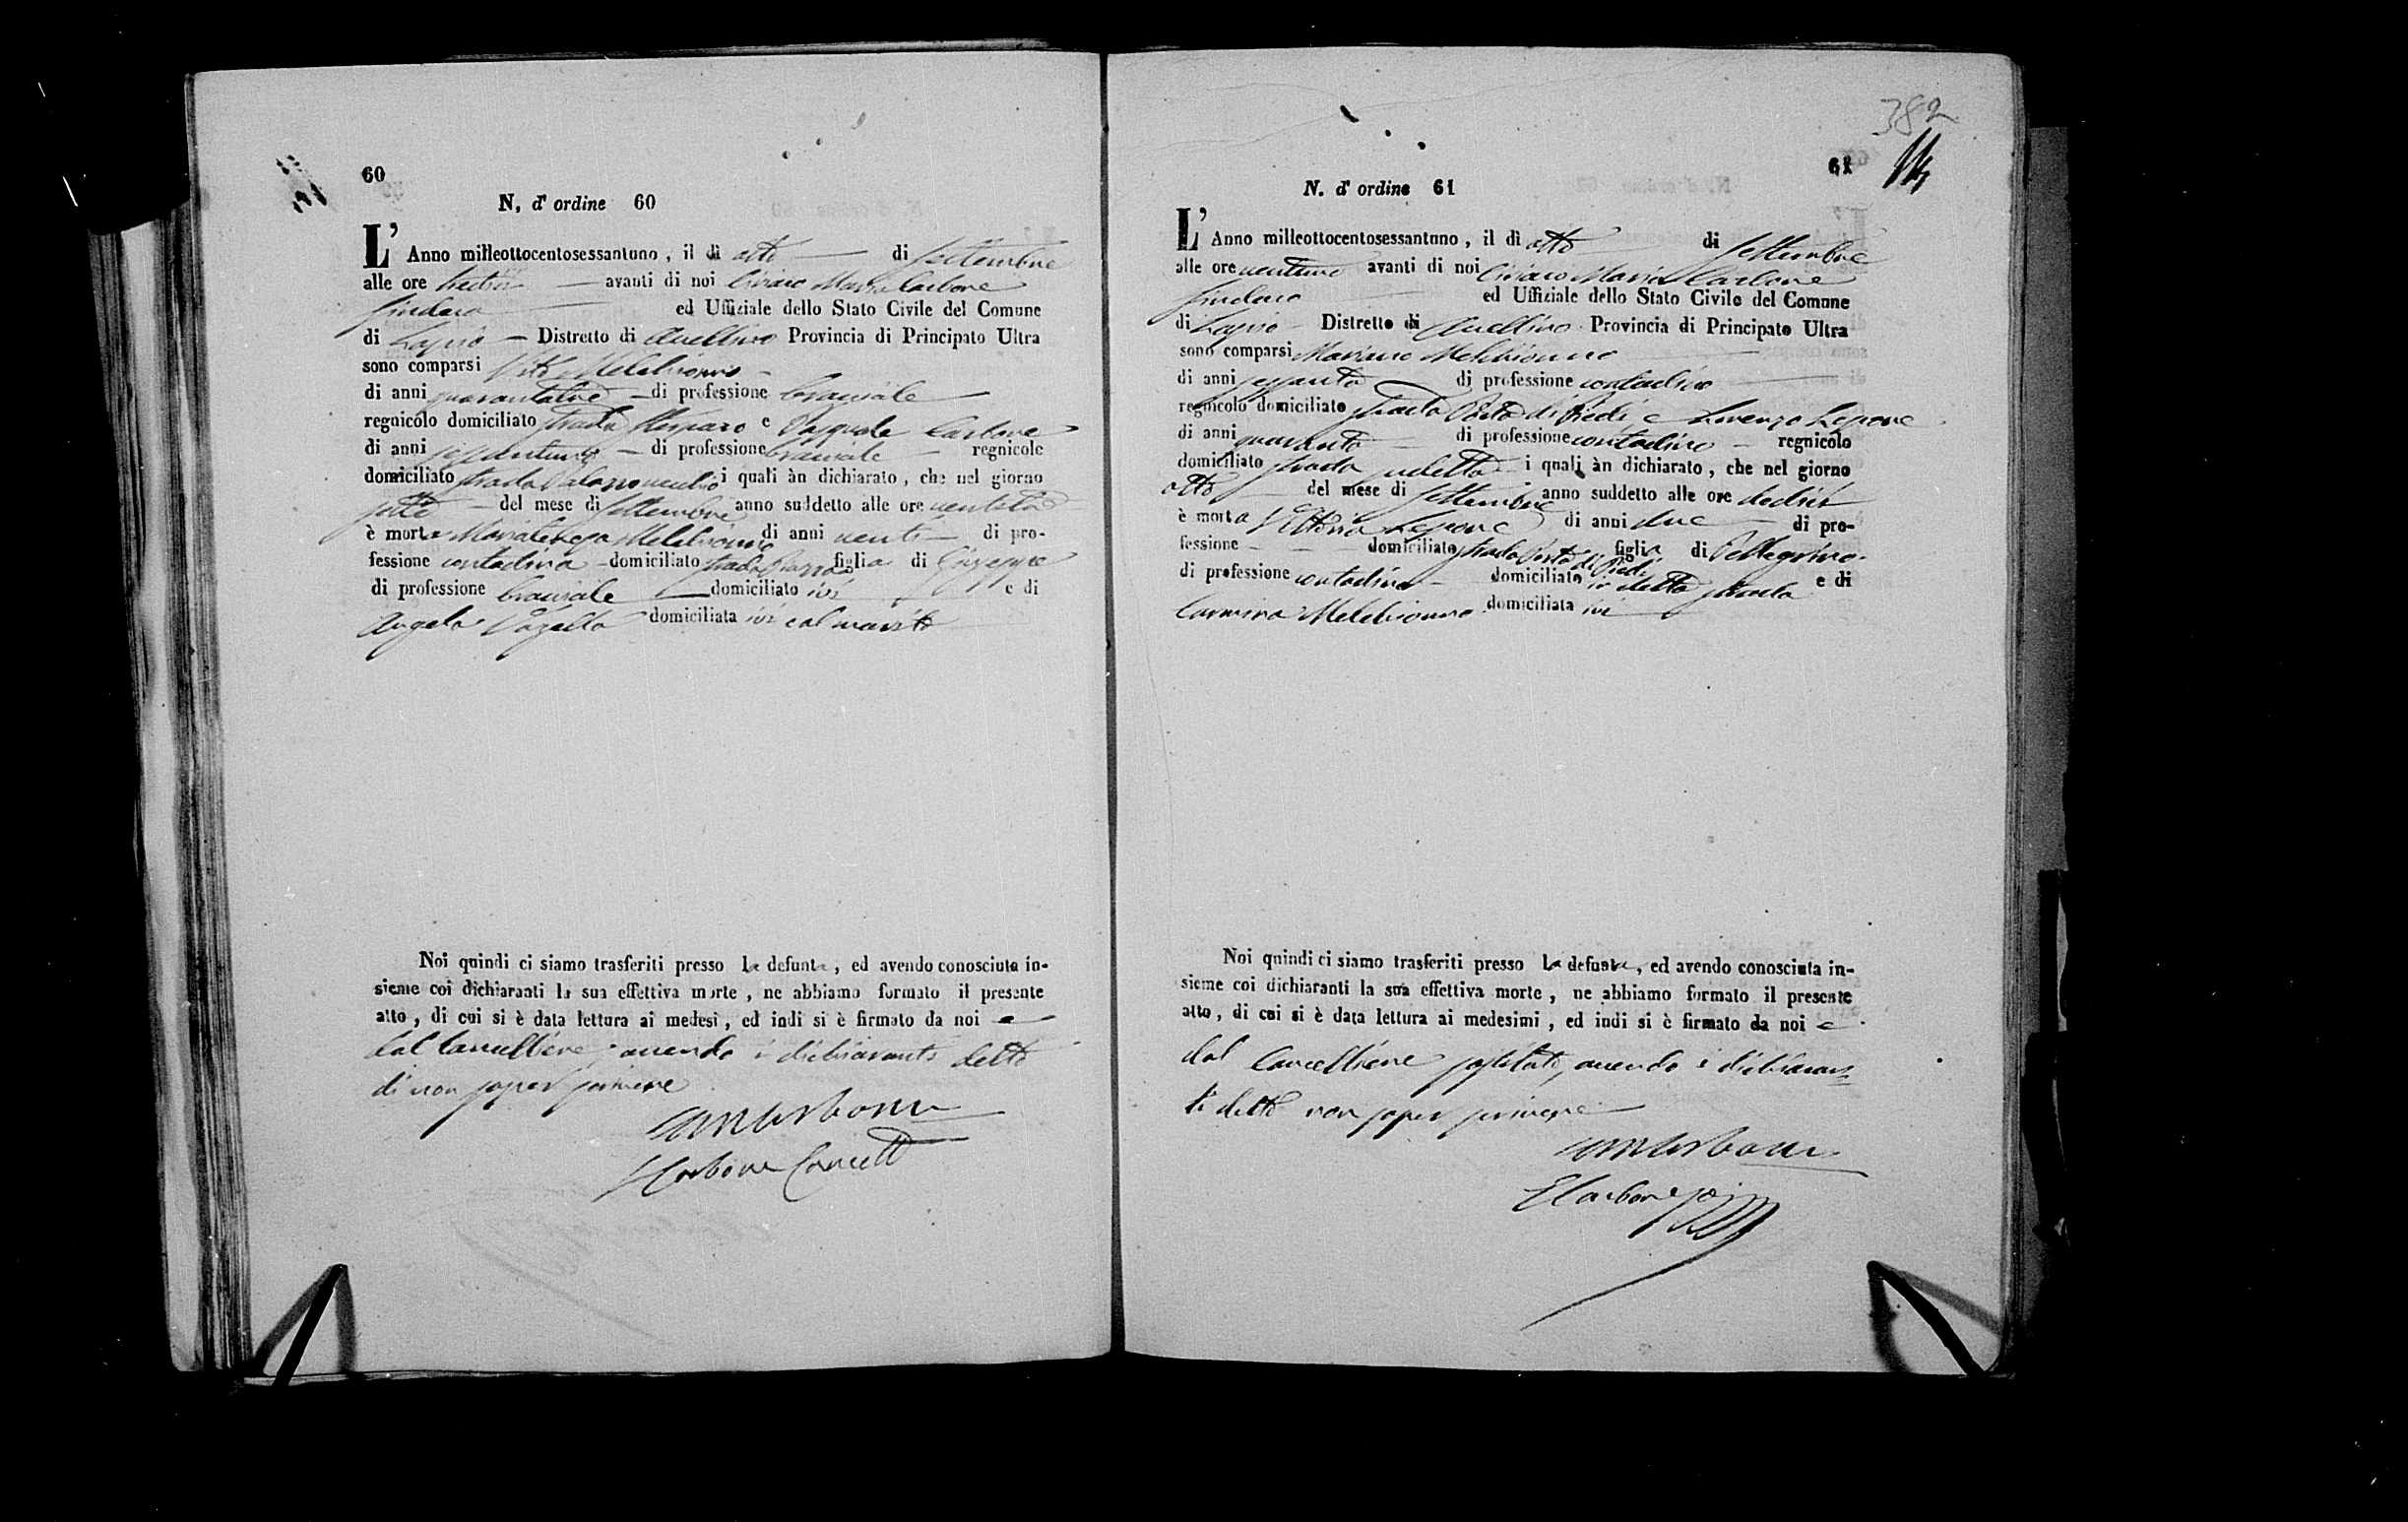 60
N. d' ordine 60
L' Anno milleottocentosessantuno, il dì otto di Settembre
alle ore tredici avanti di noi Ciriaco Maria Carbone
Sindaco ed Uffiziale dello Stato Civile del Comune
di Lapio Distretto di Avellino Provincia di Principato Ultra
sono comparsi Vito Melchionno
di anni di professione bracciale
regnicolo domiciliato strada e Pasquale Carbone
di anni sessantuno di professione bracciale regnicolo
domiciliato strada Palazzovecchio i quali àn dichiarato, che nel giorno
sette del mese di Settembre anno suddetto alle ore
è morta Mariateresa Melchionno di anni venti di pro-
fessione contadina domiciliato strada Piazza figlia di Giuseppe
di professione bracciale domiciliato ivi e di
Angela domiciliata ivi col marito
Noi quindi ci siamo trasferiti presso la defunta, ed avendo conosciuta in-
sieme coi dichiaranti la sua effettiva morte, ne abbiamo formato il presente
atto, di cui si è data lettura ai medesi, ed indi si è firmato da noi e
dal Cancelliere avendo i dichiaranti detto
di non saper scrivere
CMCarbone
Carbone Cancell
382
61
N. d' ordine 61
L' Anno milleottocentosessantuno, il dì otto di Settembre
alle ore ventuno avanti di noi Ciriaco Maria Carbone
Sindaco ed Uffiziale dello Stato Civile del Comune
di Lapio Distretto di Avellino Provincia di Principato Ultra
sono comparsi Mariano Melchionno
di anni sessanta di professione contadino
regnicolo domiciliato strada Porta di Piedi, e Lorenzo Lepore
di anni quaranta di professione contadino regnicolo
domiciliato strada sudetta i quali àn dichiarato, che nel giorno
otto del mese di Settembre anno suddetto alle ore dodici
è morta Vittoria Lepore di anni due di pro-
fessione domiciliato strada Porta di Piedi figlia di Pellegrino
di professione contadino domiciliato in detta strada e di
Carmina Melchionno domiciliata ivi
Noi quindi ci siamo trasferiti presso la defunta, ed avendo conosciuta in-
sieme coi dichiaranti la sua effettiva morte, ne abbiamo formato il presente
atto, di cui si è data lettura ai medesimi, ed indi si è firmato da noi e
dal Cancelliere sostituto, avendo i dichiaran=
ti detto non saper scrivere
CMCarbone
Carbone